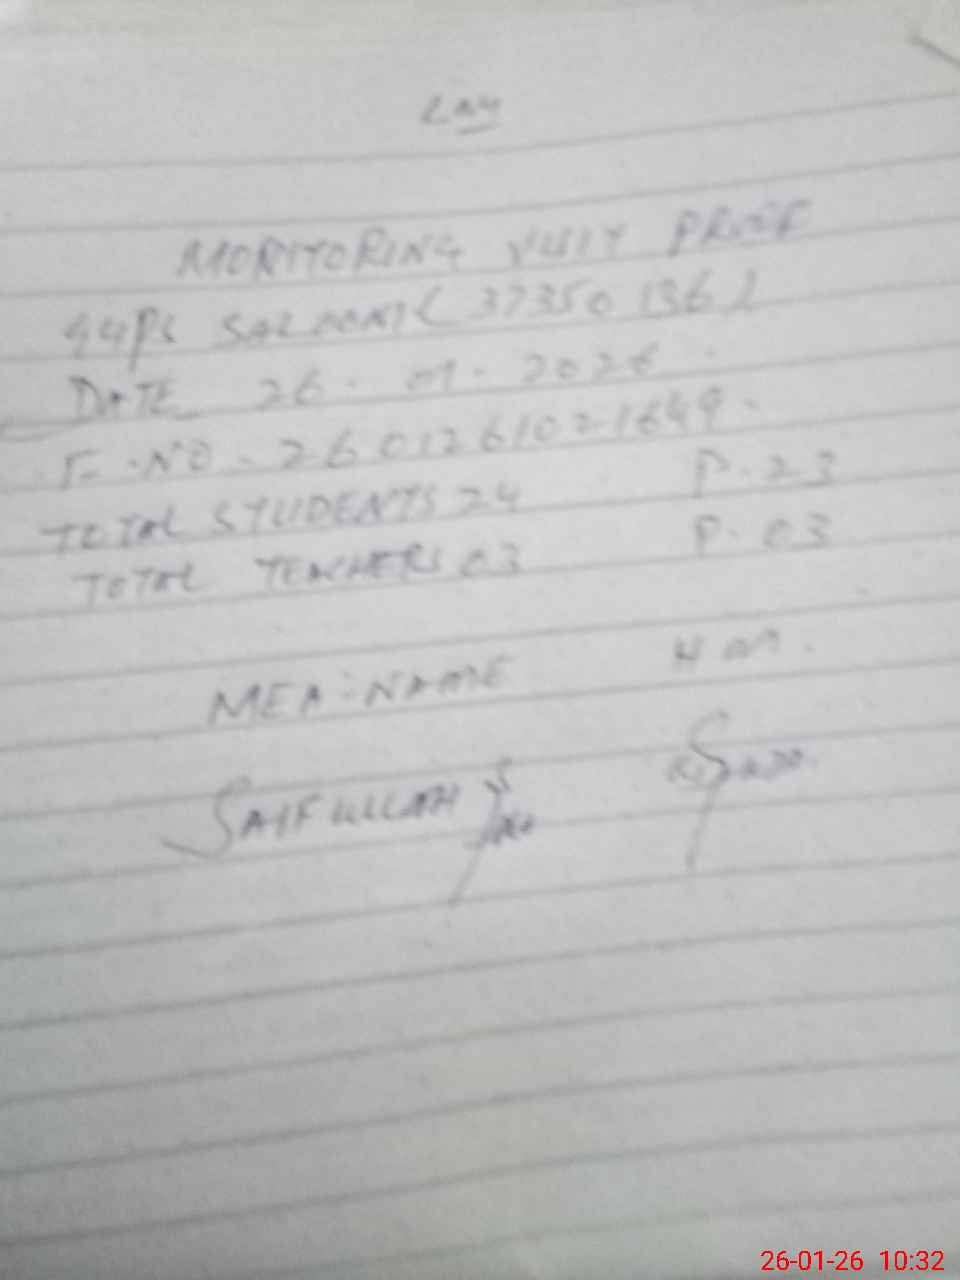 MONITORING VISIT PROOF
GGPS (37350136)
DATE 26.01.2026
F.NO. 2601261021649.
TOTAL STUDENTS 24 P.23
TOTAL TEACHERS 03 P.03
MEA:NAME H M.
SAIFULLAH
26-01-26 10:32